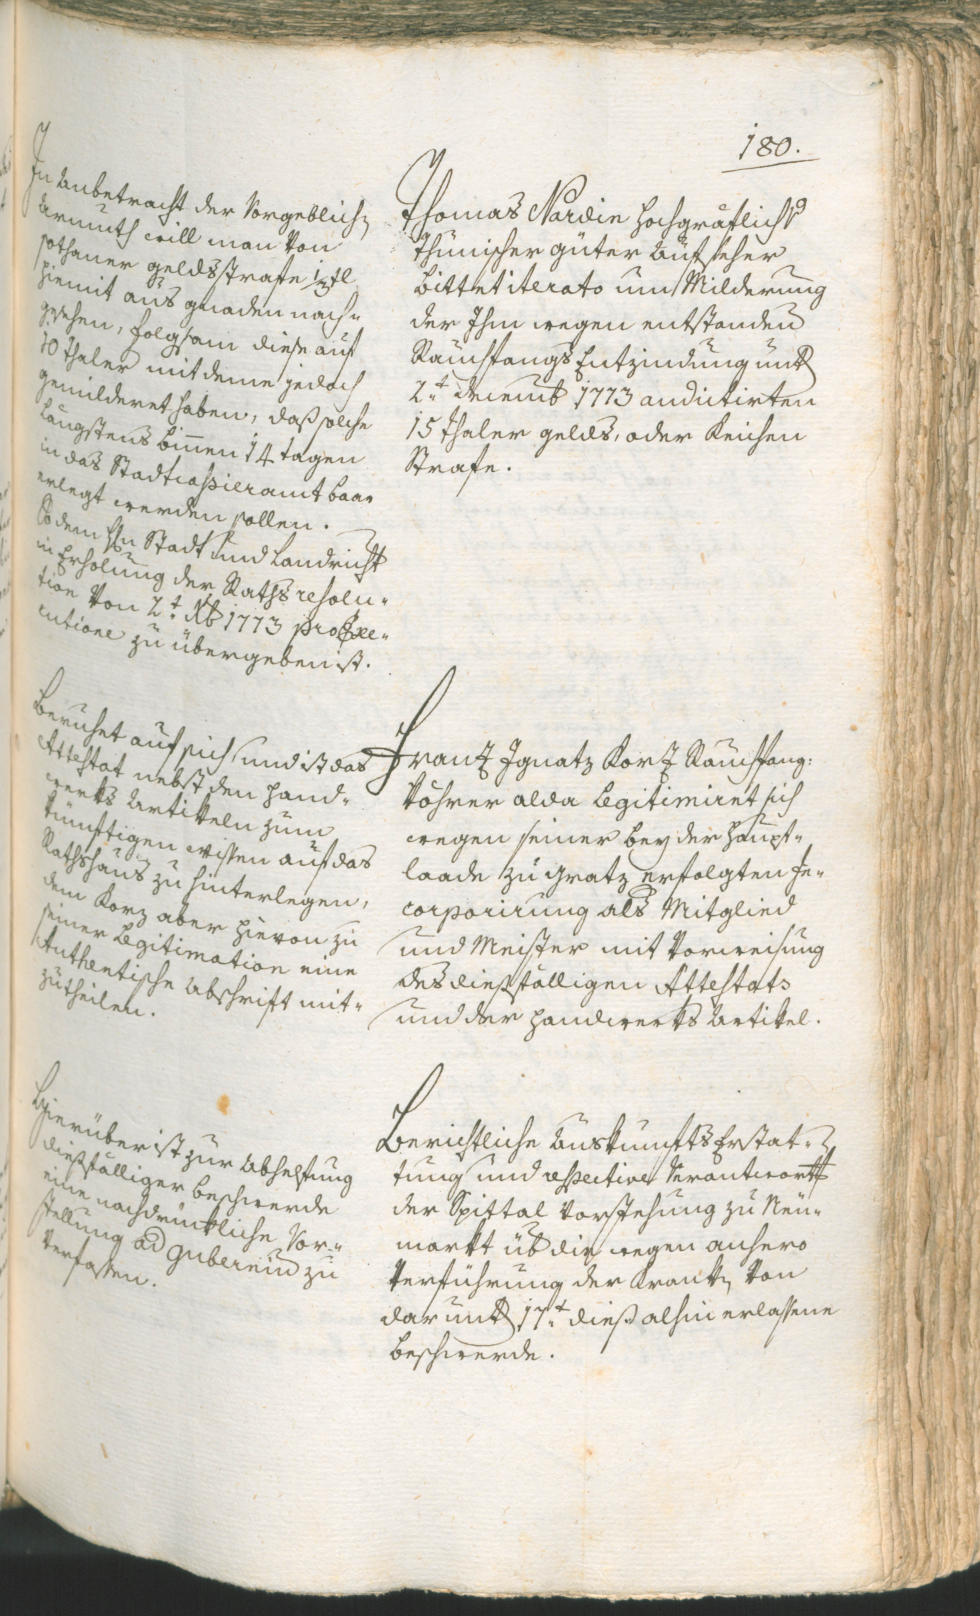 180.
In Anbetracht der Vorgeblich
Armuth will man Von
sothaner geldsstrafe 1/3tl
hiemit aus gnaden nach-
gesehen, folgsam diese auf
10 Thaler mit deme jedoch
gemilderet haben, daß solche
Längstens biñen 14 tagen
in das Stadtcaßieramt baar
erlegt werden sollen.
So dem Hn Stadt und Landricht
in Erholung der Rathsresolu-
tion Von 2t Xb 1773 pro Exe-
cutione zu übergeben ist.
Thomas Nardin Hochgräflich
Thunischer güter Aufseher
bittet iterato um Milderung
der Ihm wegen entstanden
Rauchfangs Entzindung unt
2t Decemb 1773 andictirten
15 Thaler gelds, oder Keichen
Strafe.
Beruhet auf sich, und ist das
Attestat nebst den Hand-
werks Artikeln zum
künftigen wissen auf das
Rathshaus zu hinterlegen,
dem Korz aber hievon zu
seiner Legitimation eine
Authentische Abschrift mit-
zutheilen.
Frantz Ignatz Kortz Rauchfang:
köhrer alda Legitimiret sich
wegen seiner bey der Haupt-
laade zu gratz erfolgten In-
corporirung als Mitglied
und Meister mit Vorweisung
des dießfälligen Attestats
und der Handwerks Artikel.
Hierüber ist zur Abhelfung
dießfälliger beschwerde
eine nachdrückliche Vor-
stellung ad Guberniu zu
Verfassen.
Berichtliche Auskunfts Erstat-
tung und respective Verantwort
der Spittal Vorstehung zu Neu-
markt üb die wegen anhero
Verführung der Krankn Von
dar unt 17t dieß alhin erlassene
beschwerde.